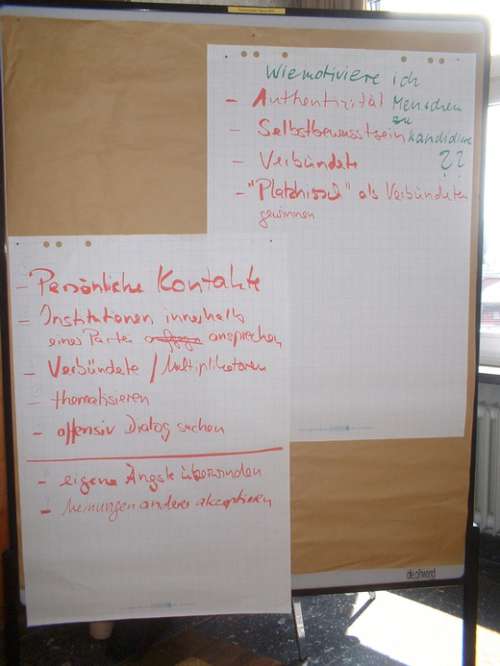 Wie motiviere ich
Menschen
zu
kandidieren
??
- Authentizität
- Selbstbewusstsein
- Verbündete
- "Platzhirsch" als Verbündeten
gewinnen
- Persönliche Kontakte
- Institutionen innerhalb
einer Partei ansprechen
- Verbündete / Multiplikatoren
- thematisieren
- offensiv Dialog suchen
- eigene Ängste überwinden
- Meinungen anderer akzeptieren